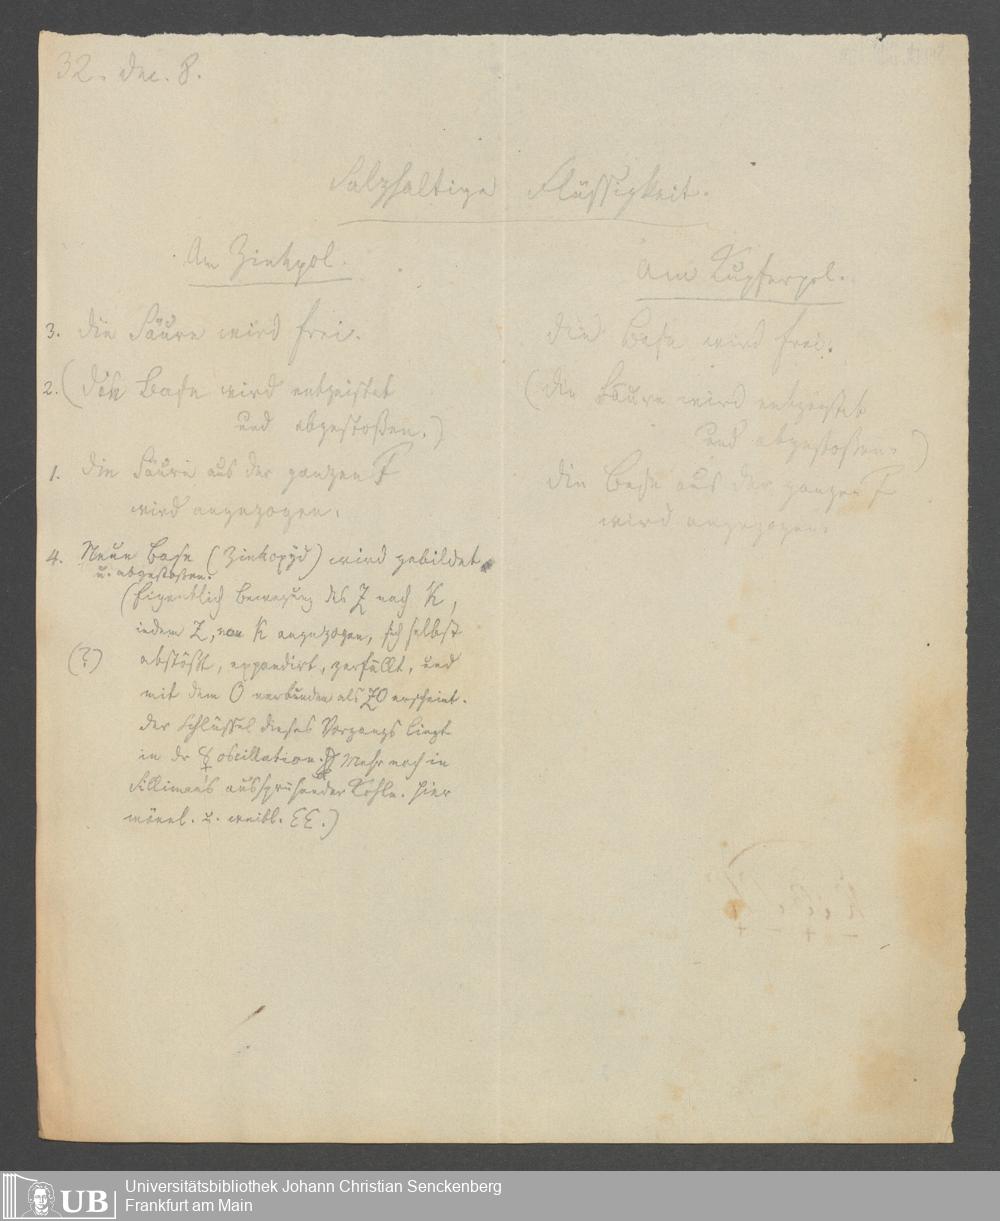 32. Dec. 8.
Salzhaltige Flüssigkeit.
Am Zinkpol.
3. die Säure wird frei.
2. (die Base wird entgeistet
und abgestoßen.)
1. die Säure aus der ganzen F
wird angezogen.
4. Neue Base (Zinkoxyd) wird gebildet
u. abgestoßen.
(Eigentlich Bewegung des Z nach K,
indem Z, von K angezogen, sich selbst
(?) abstößt, expandirt, zerfällt, und
mit dem O verbunden als ZO erscheint.
Der Schlüssel dieses Vorgangs liegt
in dr ☿ oscillation. Mehr noch in
Silliman's aussprühender Kohle. Hier
männl. u. weibl. EE.)
Am Kupferpol.
die Base wird frei.
(die Säure wird entgeistet
und abgestoßen.)
die Base aus der ganzen F
wird angezogen.
UB
Universitätsbibliothek Johann Christian Senckenberg
Frankfurt am Main